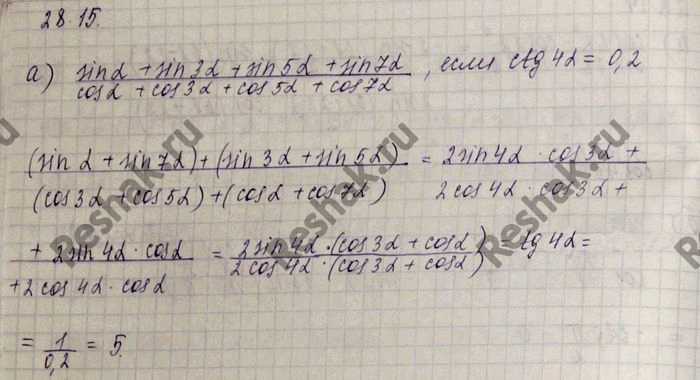 28.15.
а) (sinα + sin3α + sin5α + sin7α)/(cosα + cos3α + cos5α + cos7α), если ctg4α = 0,2
((sinα + sin7α) + (sin3α + sin5α))/((cos3α + cos5α) + (cosα + cos7α)) = (2sin4α · cos3α +)/(2cos4α · cos3α +)
(+ 2sin4α · cosα)/(+2cos4α · cosα) = (2sin4α · (cos3α + cosα))/(2cos4α · (cos3α + cosα)) = tg4α =
= 1/0,2 = 5.
Reshak.ru
Reshak.ru
Reshak.ru